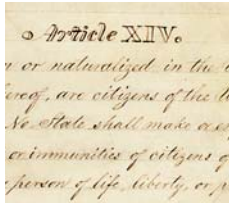 Article XIV.
or naturalized in the
hereof, are citizens of the
No State shall make or
or immunities of citizens of
person of life, liberty, or